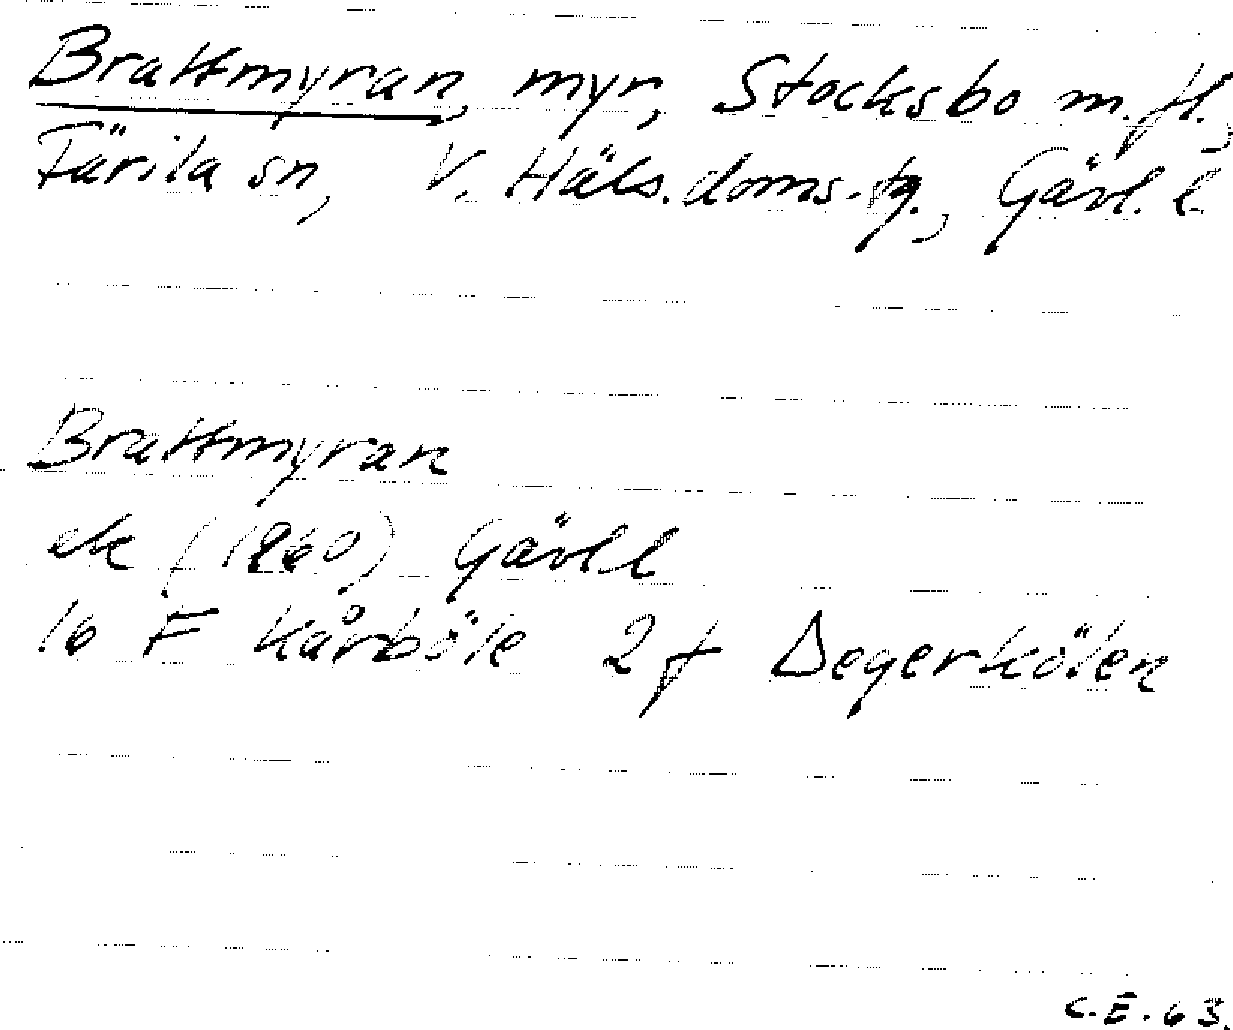 Brattmyran, myr, Stocksbo m.fl.,
Färila sn, V. Häls.doms.tg., Gävl. l
Brattmyran
ek (1960) Gävl l
16 F Kårböle 2f Degerkölen
C.E. 63.